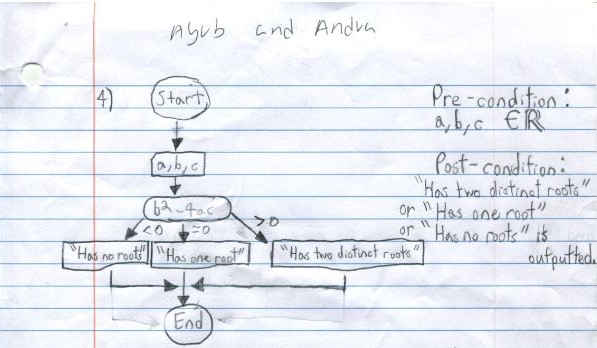 Ayub and Andra
4)
Start
a, b, c
b²-4ac
<0
=0
>0
"Has no roots"
"Has one root"
"Has two distinct roots"
End
Pre-condition:
a, b, c ∈ ℝ
Post-condition:
"Has two distinct roots"
or "Has one root"
or "Has no roots" is
outputted.